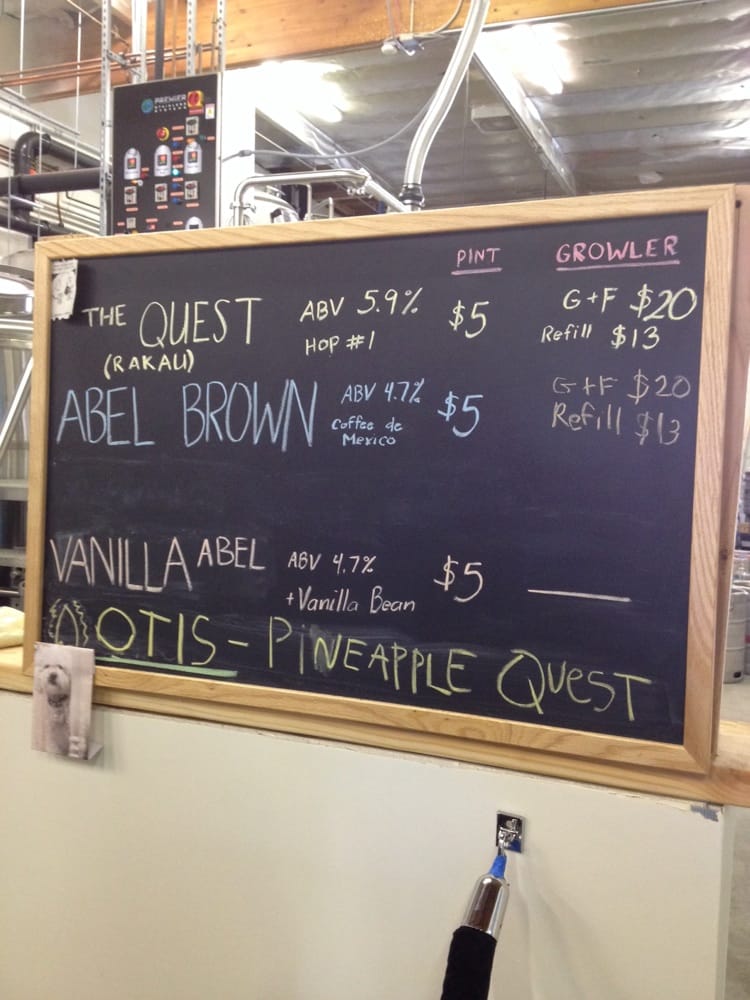 PREMIER
STAINLESS
SYSTEMS
PINT GROWLER
THE QUEST ABV 5.9% $5 G+F $20
(RAKAU) HOP #1 Refill $13
ABEL BROWN ABV 4.7% $5 G+F $20
Coffee de Refill $13
Mexico
VANILLA ABEL ABV 4.7% $5
+Vanilla Bean
OTIS - PINEAPPLE QUEST